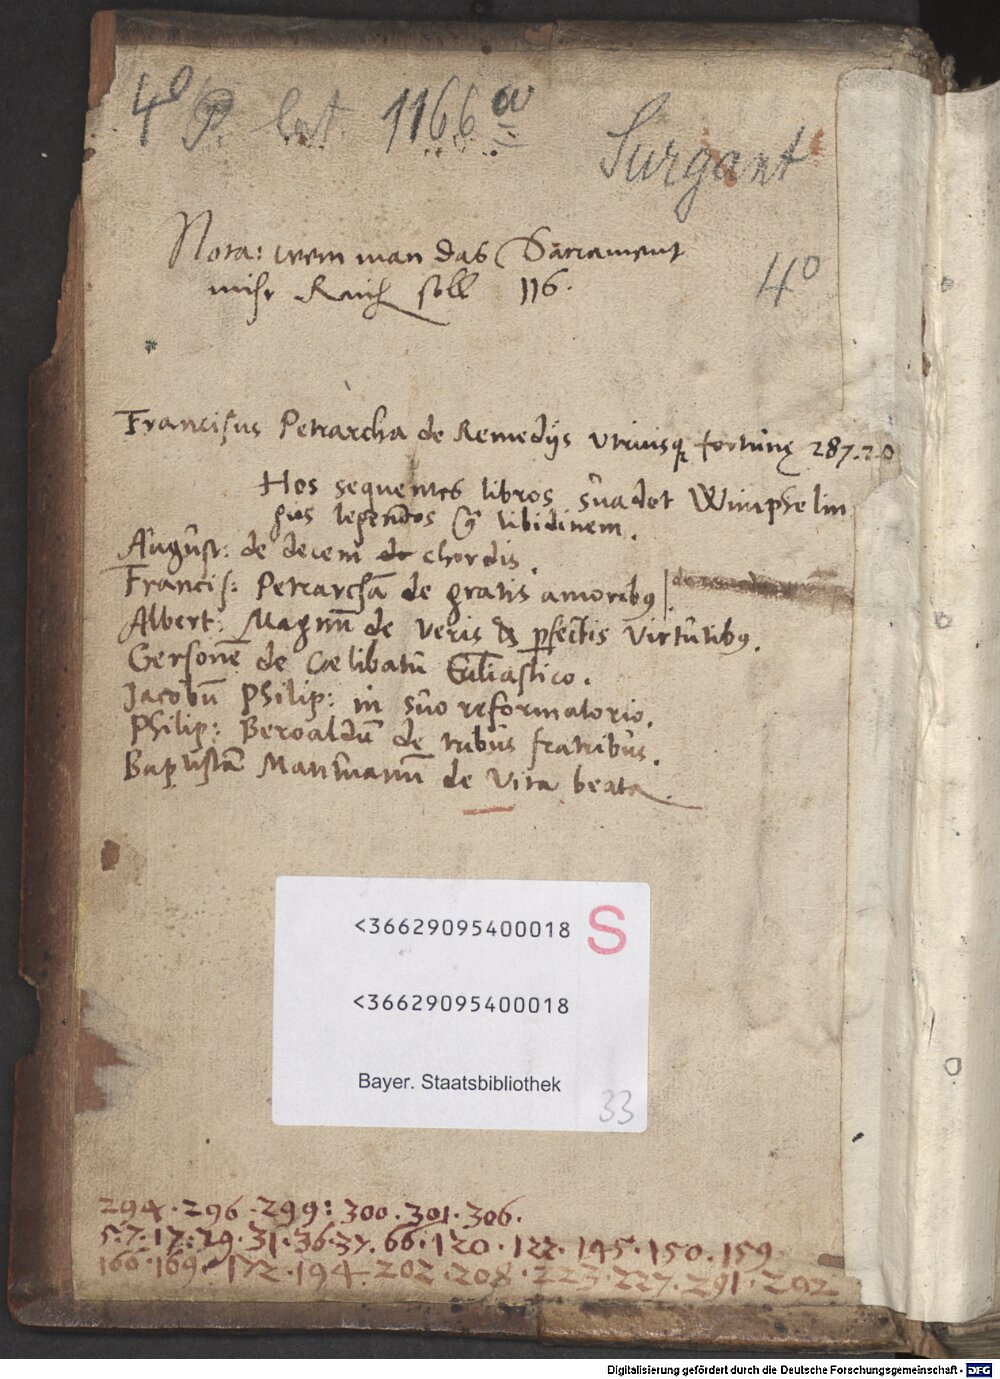 4° P. lat. 1166 w
Surgant
Nota: wem man das Sacrament
nicht Raich soll 116.
4°
Francisus Petrarcha de Remedijs utriusq fortunę 287.20
Hos sequentes libros suadet Wimphelin
gus legendos libidinem.
August: de decem de chordis.
Francis: Petrarchā de gratis amoribq
Albert: Magnū de veris & pfectis virtutibq.
Gersonē de Cœlibatu Eccliastico.
Jacobū Philip: in suo reformatorio.
Philip: Beroaldū de tribus fratribus.
Baptistā Mantuanū de Vita beata.
<36629095400018 S
<36629095400018
Bayer. Staatsbibliothek
33
294. 296. 299: 300. 301. 306.
5. 7. 17: 29. 31. 36. 37. 66. 120. 122. 145. 150. 159
166. 169. 172. 194. 202. 208. 223. 227. 291. 292
Digitalisierung gefördert durch die Deutsche Forschungsgemeinschaft - DFG